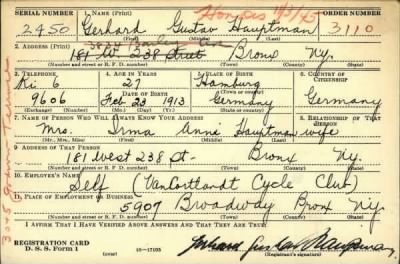 SERIAL NUMBER 1. NAME (Print) ORDER NUMBER
2450 Gerhard Gustav Hauptman 3110
(First) (Middle) (Last)
2. ADDRESS (Print)
181 W 238 Street Bronx Ny.
(Number and street or R. F. D. number) (Town) (County) (State)
3. TELEPHONE 4. AGE IN YEARS 5. PLACE OF BIRTH 6. COUNTRY OF CITIZENSHIP
Ki 6 27 Hamburg
9606 Feb 23 1913 Germany Germany
(Exchange) (Number) (Mo.) (Day) (Yr.) (State or country)
7. NAME OF PERSON WHO WILL ALWAYS KNOW YOUR ADDRESS 8. RELATIONSHIP OF THAT PERSON
Mrs. Irma Anne Hauptman wife
(Mr., Mrs., Miss) (First) (Middle) (Last)
9. ADDRESS OF THAT PERSON
181 West 238 St- Bronx Ny.
(Number and street or R. F. D. number) (Town) (County) (State)
10. EMPLOYER'S NAME
Self (VanCortlandt Cycle Club)
11. PLACE OF EMPLOYMENT OR BUSINESS
5907 Broadway Bronx Ny.
(Number and street or R. F. D. number) (Town) (County) (State)
I AFFIRM THAT I HAVE VERIFIED ABOVE ANSWERS AND THAT THEY ARE TRUE.
REGISTRATION CARD
D. S. S. Form 1 (over) 16—17105
Gerhard Gustav Hauptman
(Registrant's signature)